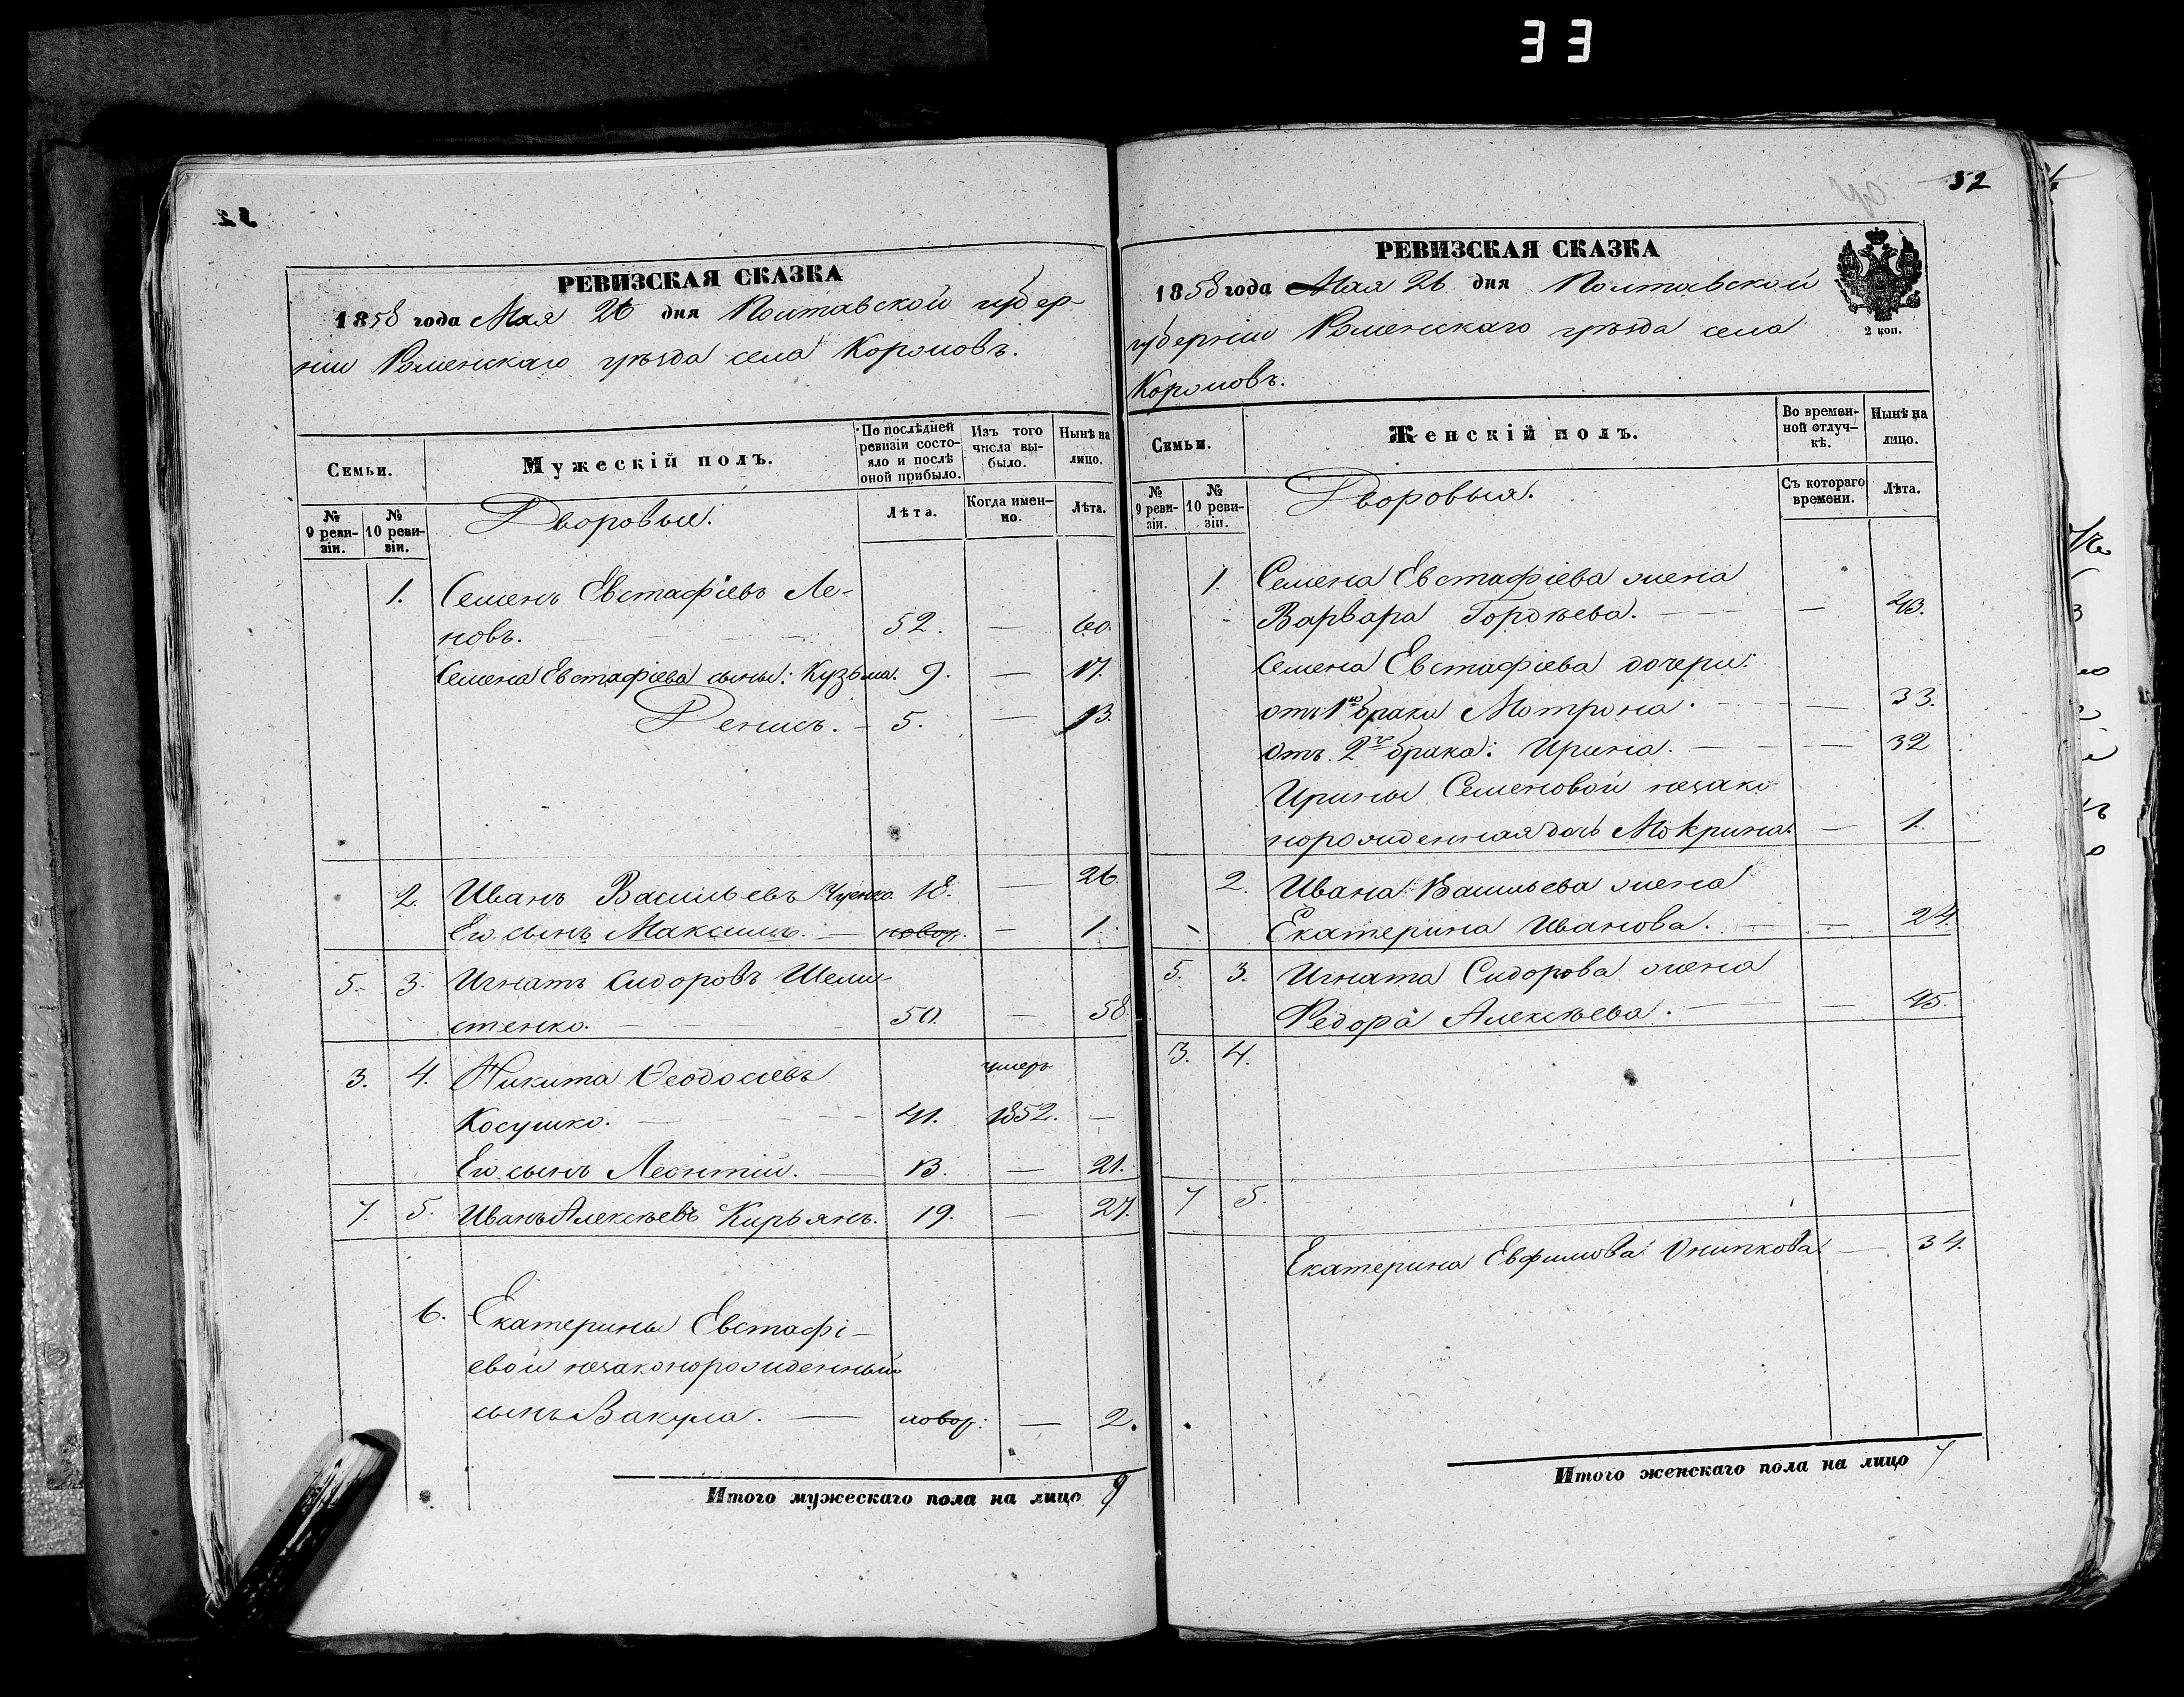 33
52
РЕВИЗСКАЯ СКАЗКА
1858 года Мая 26 дня Полтавской губер-
нии Роменскаго уѣзда села Корововъ.
Семьи.
Мужескій полъ.
По послѣдней ревизіи состояло и послѣ оной прибыло.
Изъ того числа выбыло.
Нынѣ на лицо.
№ 9 ревизіи.
№ 10 ревизіи.
Дворовые.
Лѣта.
Когда именно.
Лѣта.
1. Семенъ Евстафіевъ Ле-
новъ. 52. — 60.
Семена Евстафіева сыны: Кузьма. 9. — 17.
Денисъ. — 5. — 13.
2. Иванъ Васильевъ 18. — 26.
Его сынъ Максимъ. — новор. — 1.
5. 3. Игнатъ Сидоровъ Шели-
стенко. — 50. — 58.
3. 4. Никита Ѳеодосіевъ умеръ
Косушко. — 41. 1852. —
Его сынъ Леонтій. — 13. — 21.
7. 5. Иванъ Алексѣевъ Кирьянъ. 19. — 27.
6. Екатерины Евстафі-
евой незаконорожденный
сынъ Вакула. — новор: — 2.
Итого мужескаго пола на лицо 9
52
РЕВИЗСКАЯ СКАЗКА
1858 года Мая 26 дня Полтавской
губерніи Роменскаго уѣзда села
Корововъ.
2 коп.
Семьи.
Женскій полъ.
Во временной отлучкѣ.
Нынѣ на лицо.
№ 9 ревизіи.
№ 10 ревизіи.
Дворовыя.
Съ котораго времени.
Лѣта.
1. Семена Евстафіева жена
Варвара Гордѣева. — — 43.
Семена Евстафіева дочери:
отъ 1го брака Мотрона. — — 33.
отъ 2го брака: Ирина. — — 32
Ирины Семеновой незако-
норожденная дочь Мокрина. — 1.
2. Ивана Васильева жена
Екатерина Иванова. — — 24.
5. 3. Игната Сидорова жена
Федора Алексѣева. — — 45.
3. 4.
7 5.
Екатерина Евфимова Онипкова — 34.
Итого женскаго пола на лицо 7